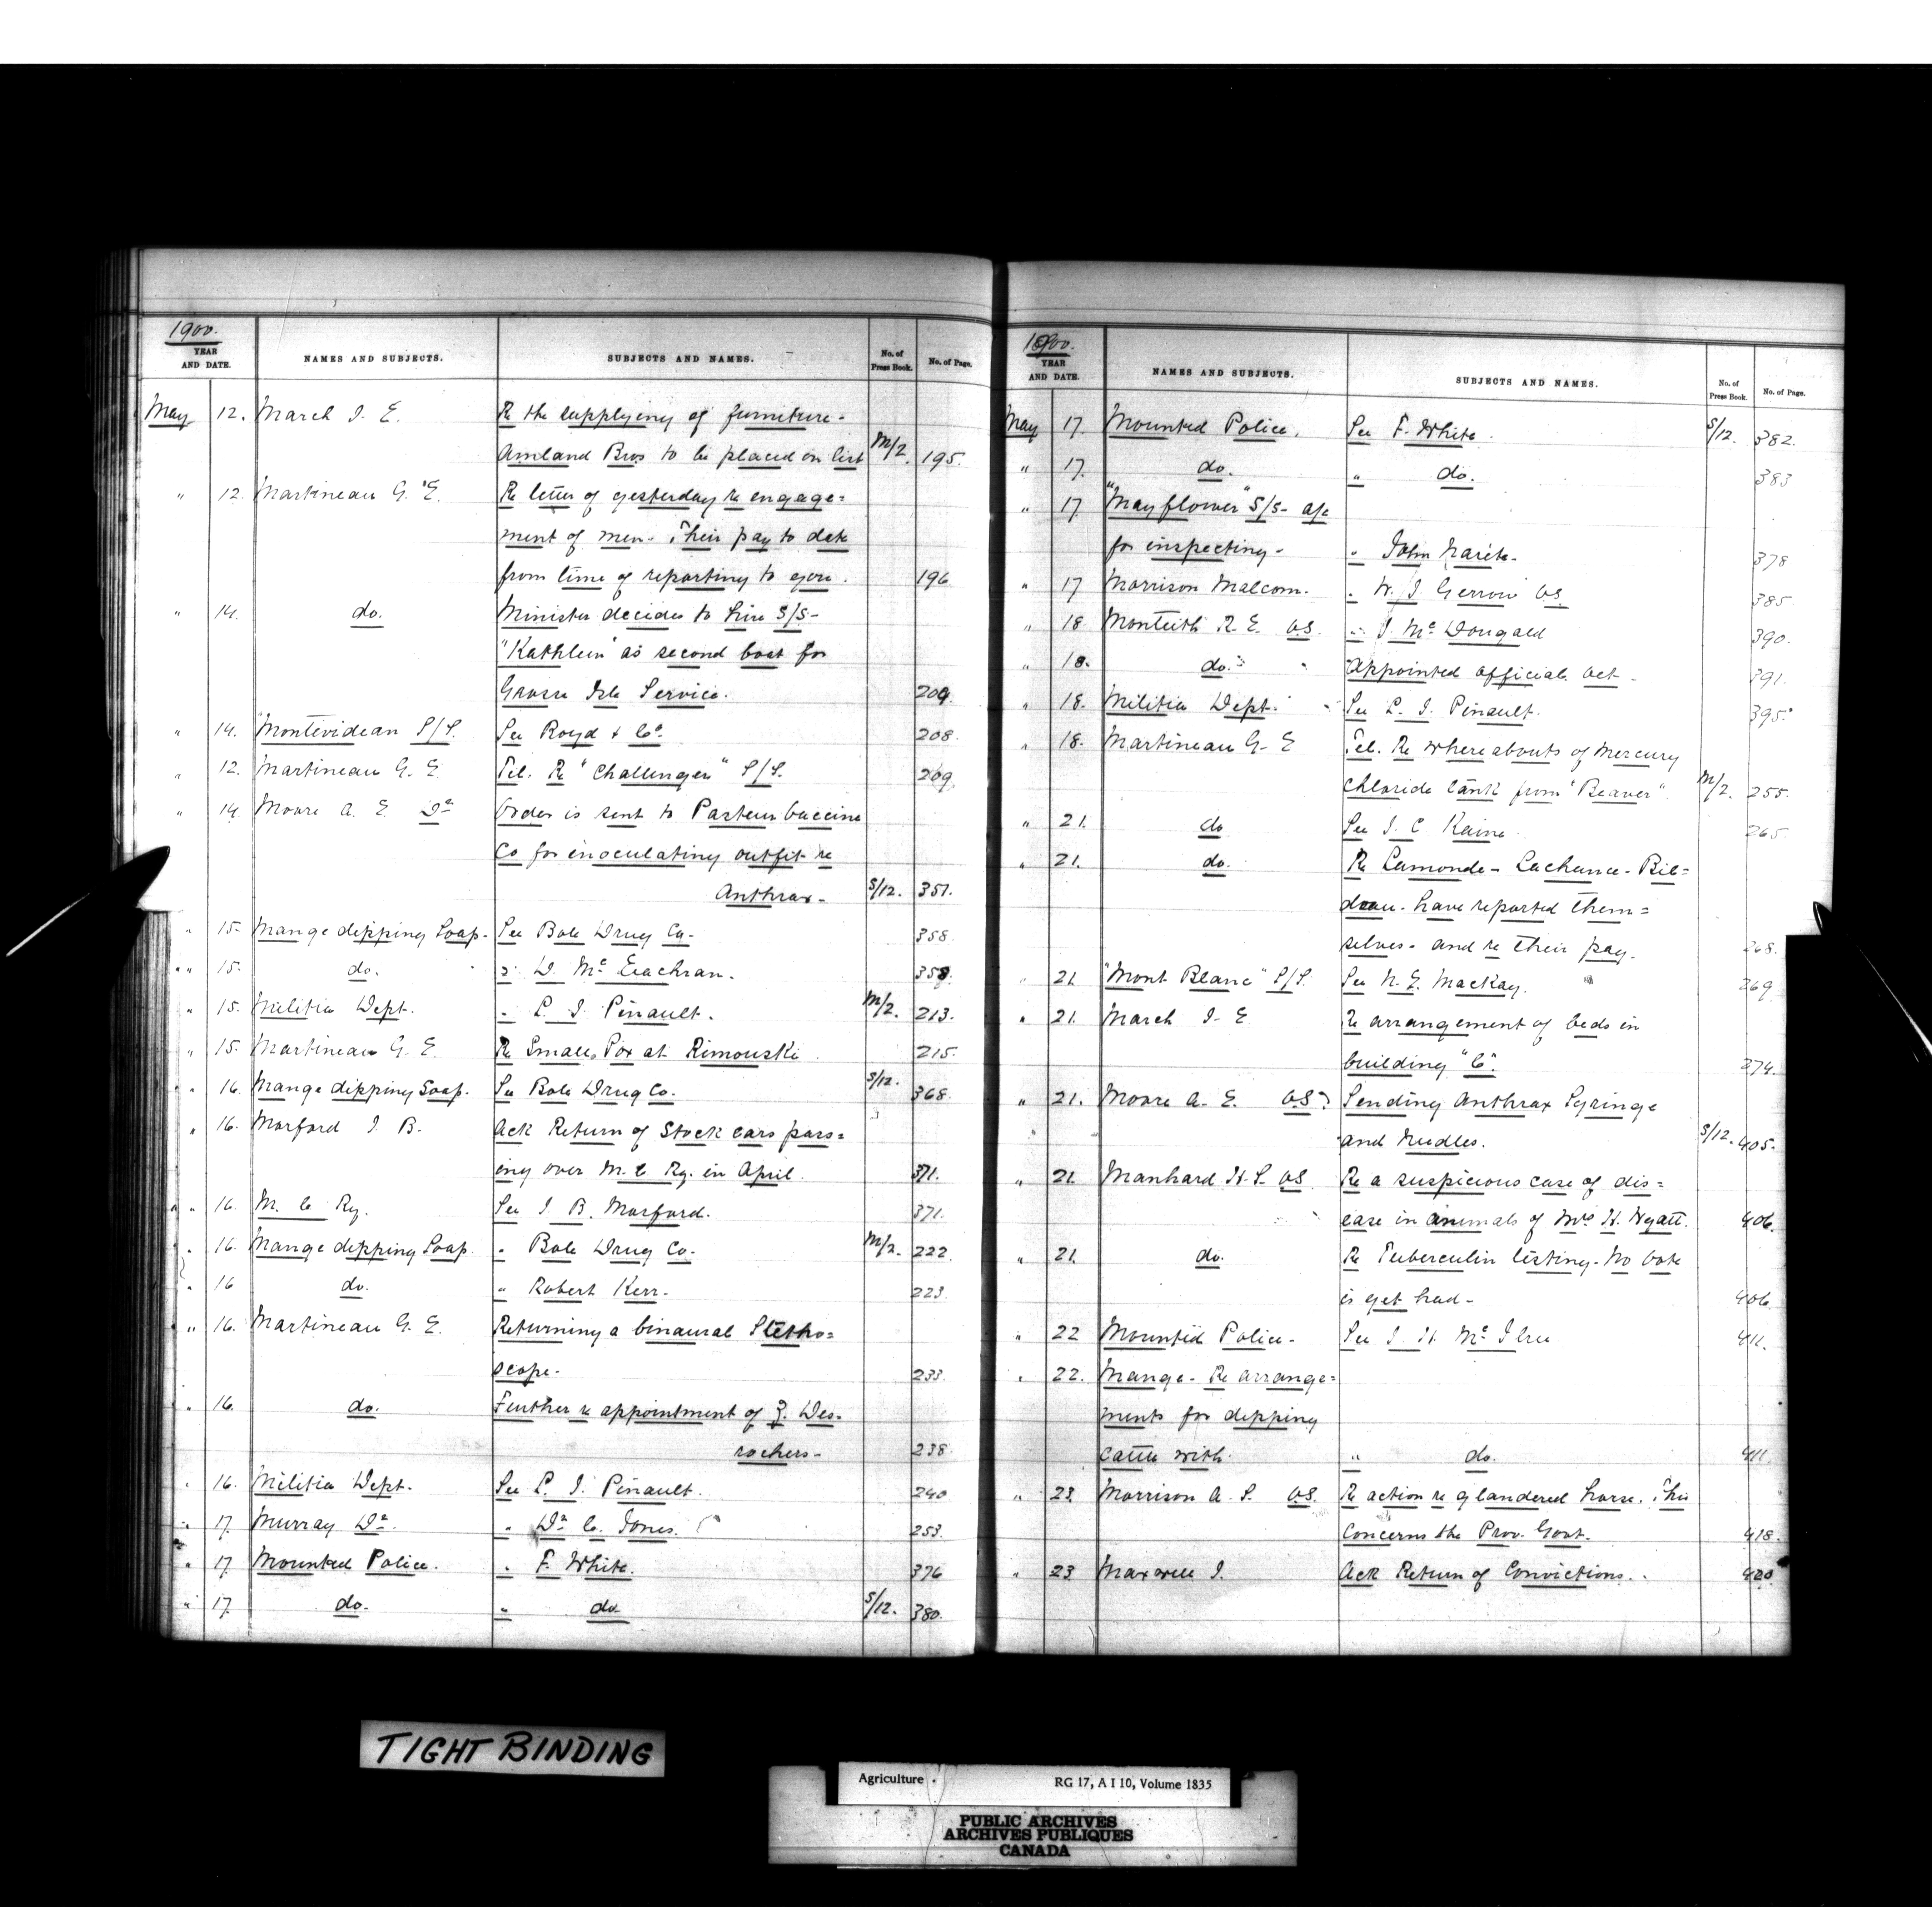 1900.
YEAR AND DATE. NAMES AND SUBJECTS. SUBJECTS AND NAMES. No. of Press Book. No. of Page.
May 12. March J. E. Re the supplying of furniture-
Bros to be placed on list M/2. 195.
" 12. Martineau G. E. Re letter of yesterday re engage=
ment of men. Their pay to date
from time of reporting to you. 196
" 14. do. Minister decides to hire S/S-
"Kathleen" as second boat for
Grosse Isle Service. 204
" 14. "Montevidean S/S. See Boyd & Co. 208.
" 12. Martineau G. E. Tel. Re "Challenger" S/S. 209.
" 14. Moore A. E. Dr Order is sent to Pasteur Vaccine
Co for inoculating outfit re
Anthrax- S/12. 351.
" 15- Mange dipping Soap- See Bole Drug Co- 358.
" 15. do. " D. Mc Eachran. 359.
" 15. Militia Dept. " L. J. Pinault. M/2. 213.
" 15. Martineau G. E. Re Small Pox at Rimouski. 215.
" 16. Mange dipping Soap. See Bole Drug Co. S/12. 368.
" 16. Morford J. B. Ack Return of Stock cars pass=
ing over M. C Ry. in April. 371.
" 16. M. C Ry. See J. B. Morford. 371.
" 16. Mange dipping Soap. " Bole Drug Co. M/2. 222.
" 16 do. " Robert Kerr- 223.
" 16. Martineau G. E. Returning a binaural Stetho=
scope- 233.
" 16. do. Further re appointment of Z. Des-
rochers- 238.
" 16. Militia Dept. See L. J. Pinault. 240
" 17. Murray Dr. " Dr C. Jones. 253.
" 17. Mounted Police. " F. White. 376
" 17. do. " do. S/12. 380.
1900.
YEAR AND DATE. NAMES AND SUBJECTS. SUBJECTS AND NAMES. No. of Press Book. No. of Page.
May 17. Mounted Police. See F. White. S/12. 382.
" 17. do. " do. 383
" 17. "Mayflower" S/S- a/c
for inspecting- " John 378
" 17 Morrison Malcom. " W. J. V.S. 385.
" 18 Monteith R. E. V.S. " J. Mc Dougald 390.
" 18. do. " Appointed official vet. 391.
" 18. Militia Dept. See L. J. Pinault. 395.
" 18. Martineau G. E Tel. Re whereabouts of Mercury
Chloride tank from "Beaver". M/2. 255.
" 21. do See J. C Kaine 265.
" 21. do. Re Lamonde- Lachance- Bil=
deau- have reported them=
selves- and re their pay. 268.
" 21. "Mont Blanc" S/S. See N. E. MacKay. 269
" 21. March J. E Re arrangement of beds in
building "C". 274.
" 21. Moore A. E. V.S. Sending Anthrax Syringe
and Needles. S/12. 405.
" 21. Manhard W. S. V.S. Re a suspicious case of dis=
ease in animals of Mrs H. Wyatt. 406.
" 21. do. Re Tuberculin testing- No Vote
is yet had- 406.
" 22 Mounted Police- See J. H. Mc Illree 411.
" 22. Mange- Re arrange=
ments for dipping
cattle with. " do. 411.
" 23. Morrison A. S. V.S. Re action re glandered horse. This
concerns the Prov. Govt. 418.
" 23 Maxwell J. Ack Return of Convictions. 420
TIGHT BINDING
Agriculture. RG 17, A I 10, Volume 1835
PUBLIC ARCHIVES
ARCHIVES PUBLIQUES
CANADA